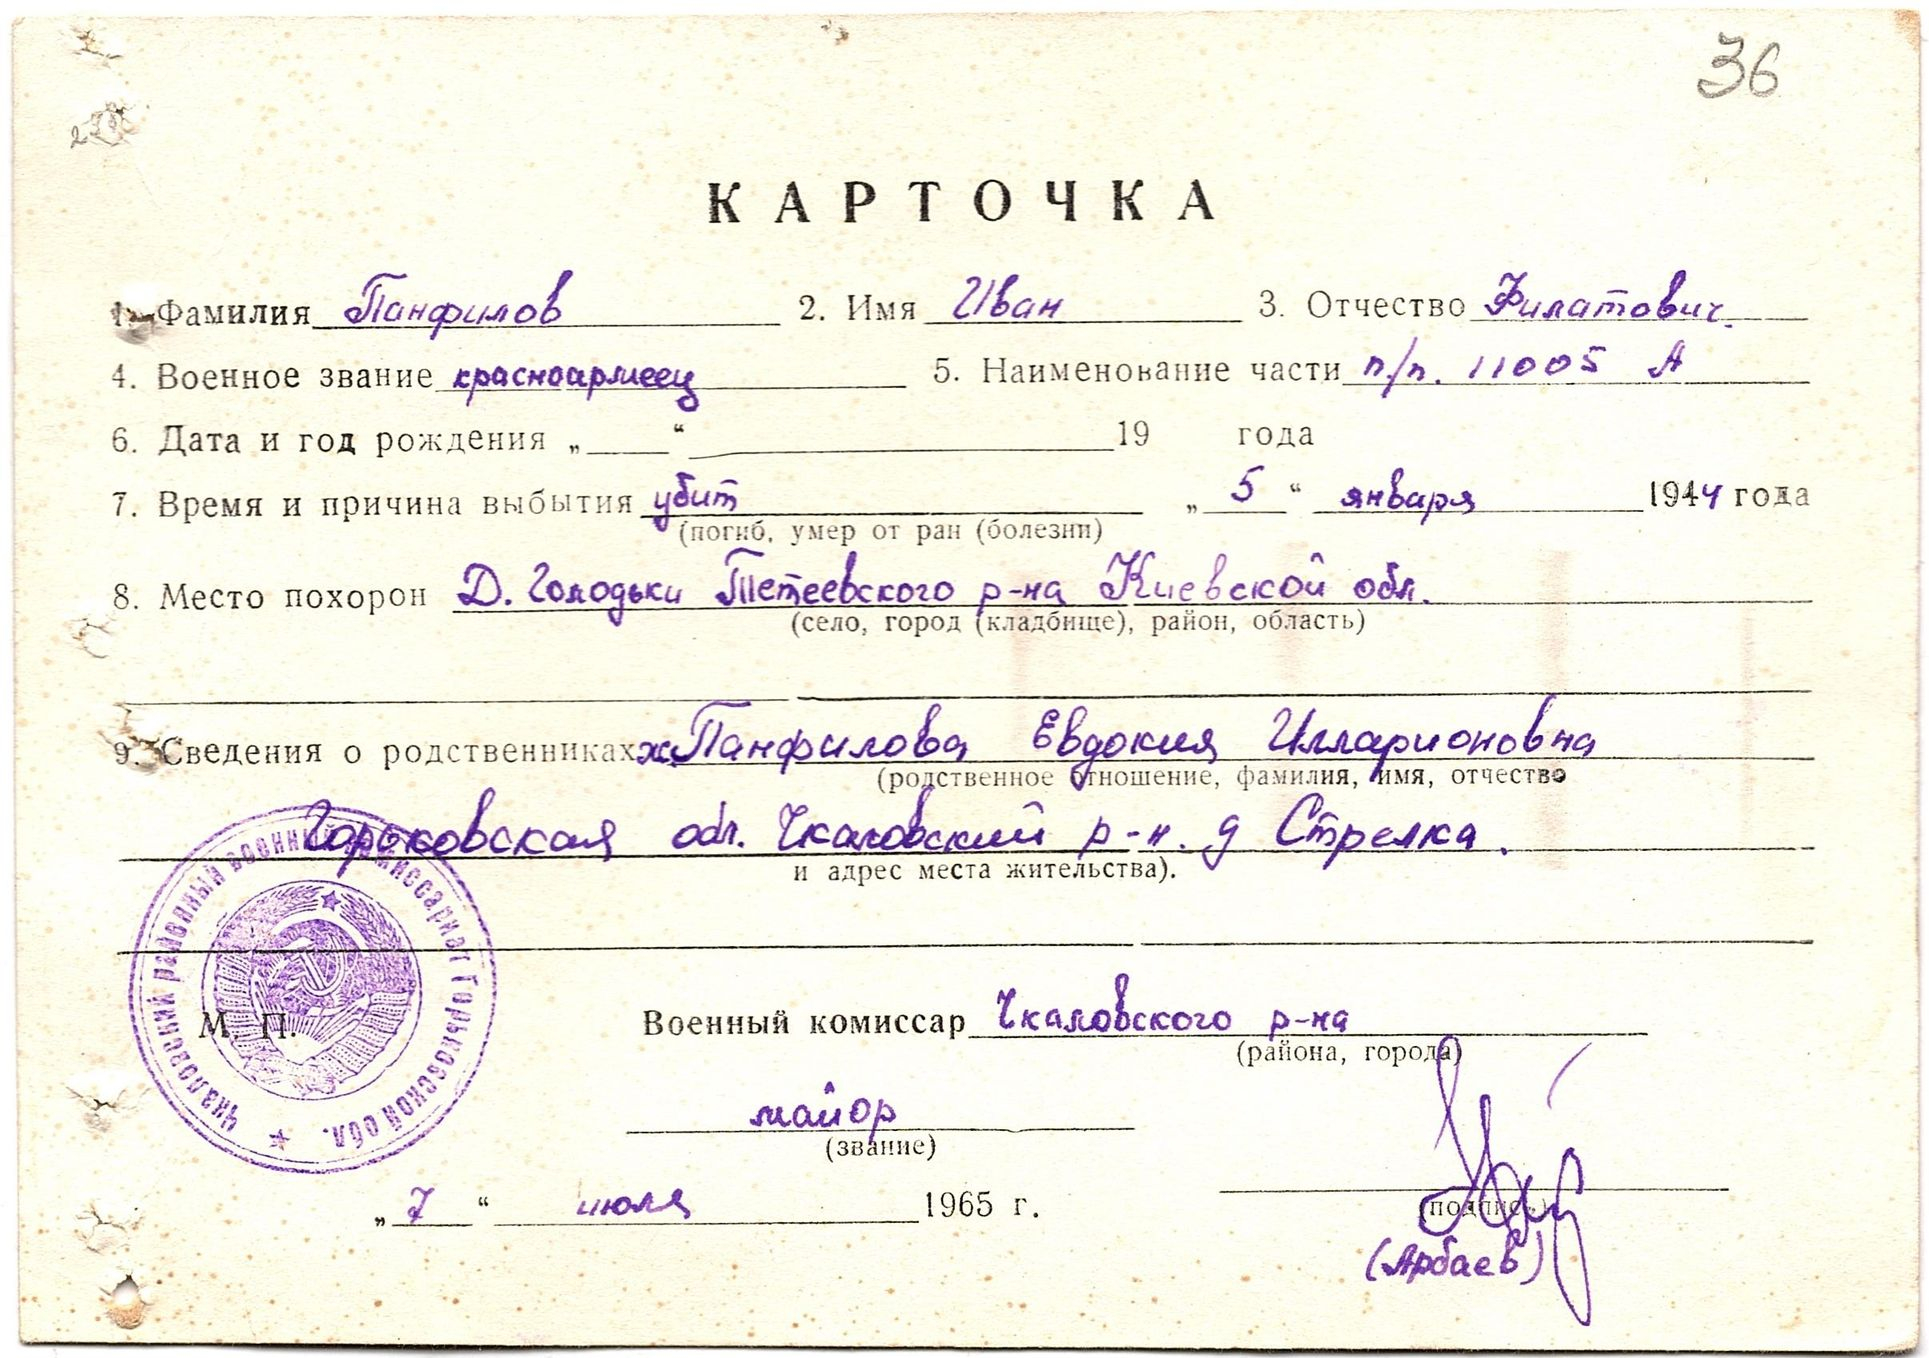 36
КАРТОЧКА
1. Фамилия Панфилов 2. Имя Иван 3. Отчество Филатович.
4. Военное звание красноармеец 5. Наименование части п/п. 11005 А
6. Дата и год рождения „ “ 19 года
7. Время и причина выбытия убит „ 5 “ января 1944 года
(погиб, умер от ран (болезни)
8. Место похорон Д. Голодьки Тетеевского р-на Киевской обл.
(село, город (кладбище), район, область)
9. Сведения о родственниках ж. Панфилова Евдокия Илларионовна
(родственное отношение, фамилия, имя, отчество
Горьковская обл. Чкаловский р-н. д Стрелка.
и адрес места жительства).
Чкаловский районный военный комиссариат Горьковской обл.
М. П.
Военный комиссар Чкаловского р-на
(района, города)
майор
(звание)
„ 7 “ июля 1965 г.
(подпись)
(Арбаев)